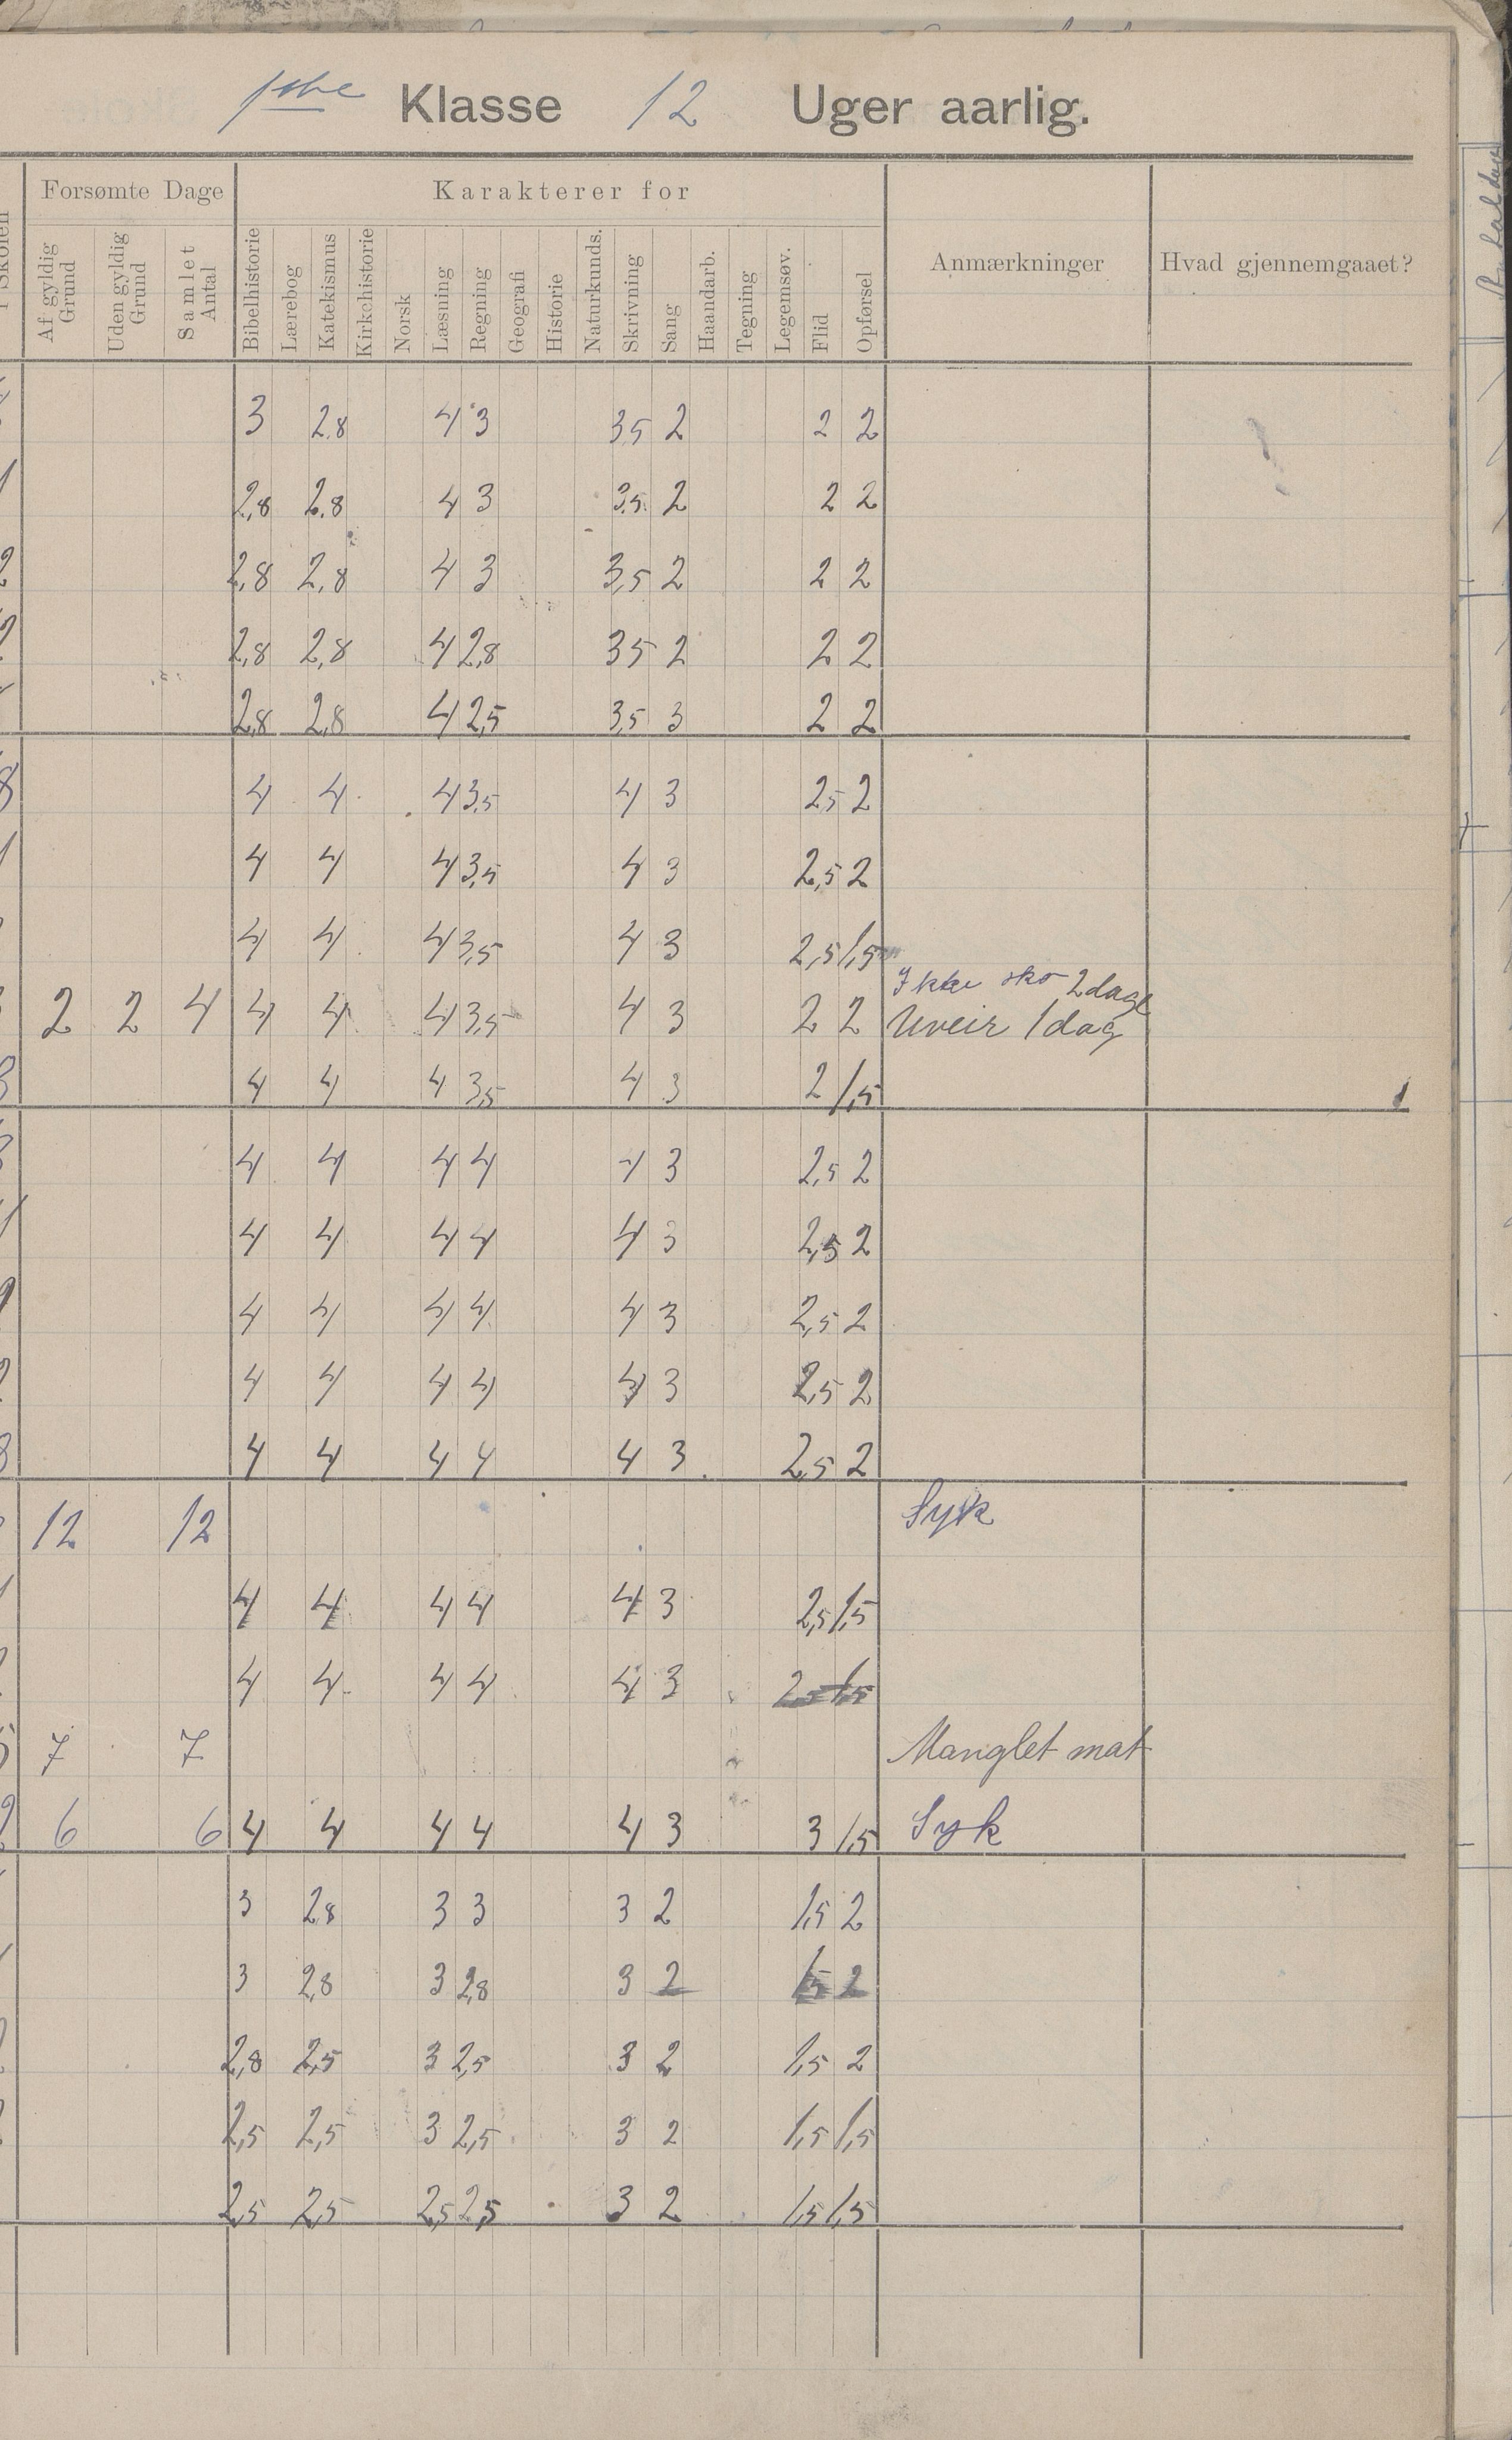 1ste Klasse 12 Uger aarlig.
Forsømte Dage Karakterer for Anmærkninger Hvad gjennemgaaet?
Af gyldig Grund Uden gyldig Grund Samlet Antal Bibelhistorie Lærebog Katekismus Kirkehistorie Norsk Læsning Regning Geografi Historie Naturkunds. Skrivning Sang Haandarb. Tegning Legemsøv. Flid Opførsel
3 2.8 4 3 3,5 2 2 2
2,8 2.8 4 3 3.5 2 2 2
2,8 2,8 4 3 3,5 2 2 2
2,8 2,8 4 2,8 3 5 2 2 2
2,8 2,8 4 2,5 3,5 3 2 2
4 4 4 3,5 4 3 2,5 2
4 4 4 3,5 4 3 2,5 2
4 4 4 3,5 4 3 2,5 1,5
Ikke sko 2 dage
2 2 4 4 4 4 3,5 4 3 2 2 Uveir 1 dag
4 4 4 3,5 4 3 2 1,5
4 4 4 4 4 3 2,5 2
4 4 4 4 4 3 2,5 2
4 4 4 4 4 3 2,5 2
4 4 4 4 4 3 2,5 2
4 4 4 4 4 3 2,5 2
12 12 Syk
4 4 4 4 4 3 2,5 1,5
4 4 4 4 4 3 2,5 1,5
7 7 Manglet mat
6 6 4 4 4 4 4 3 3 1,5 Syk
3 2,8 3 3 3 2 1,5 2
3 2,8 3 2,8 3 2 1,5 2
2,8 2,5 3 2,5 3 2 1,5 2
2,5 2,5 3 2,5 3 2 1,5 1,5
2,5 2,5 2,5 2,5 3 2 1,5 1,5